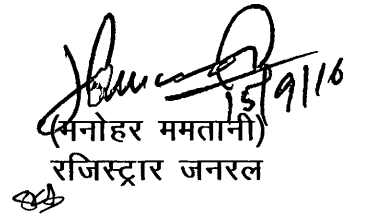 15/9/16
(मनोहर ममतानी)
रजिस्ट्रार जनरल